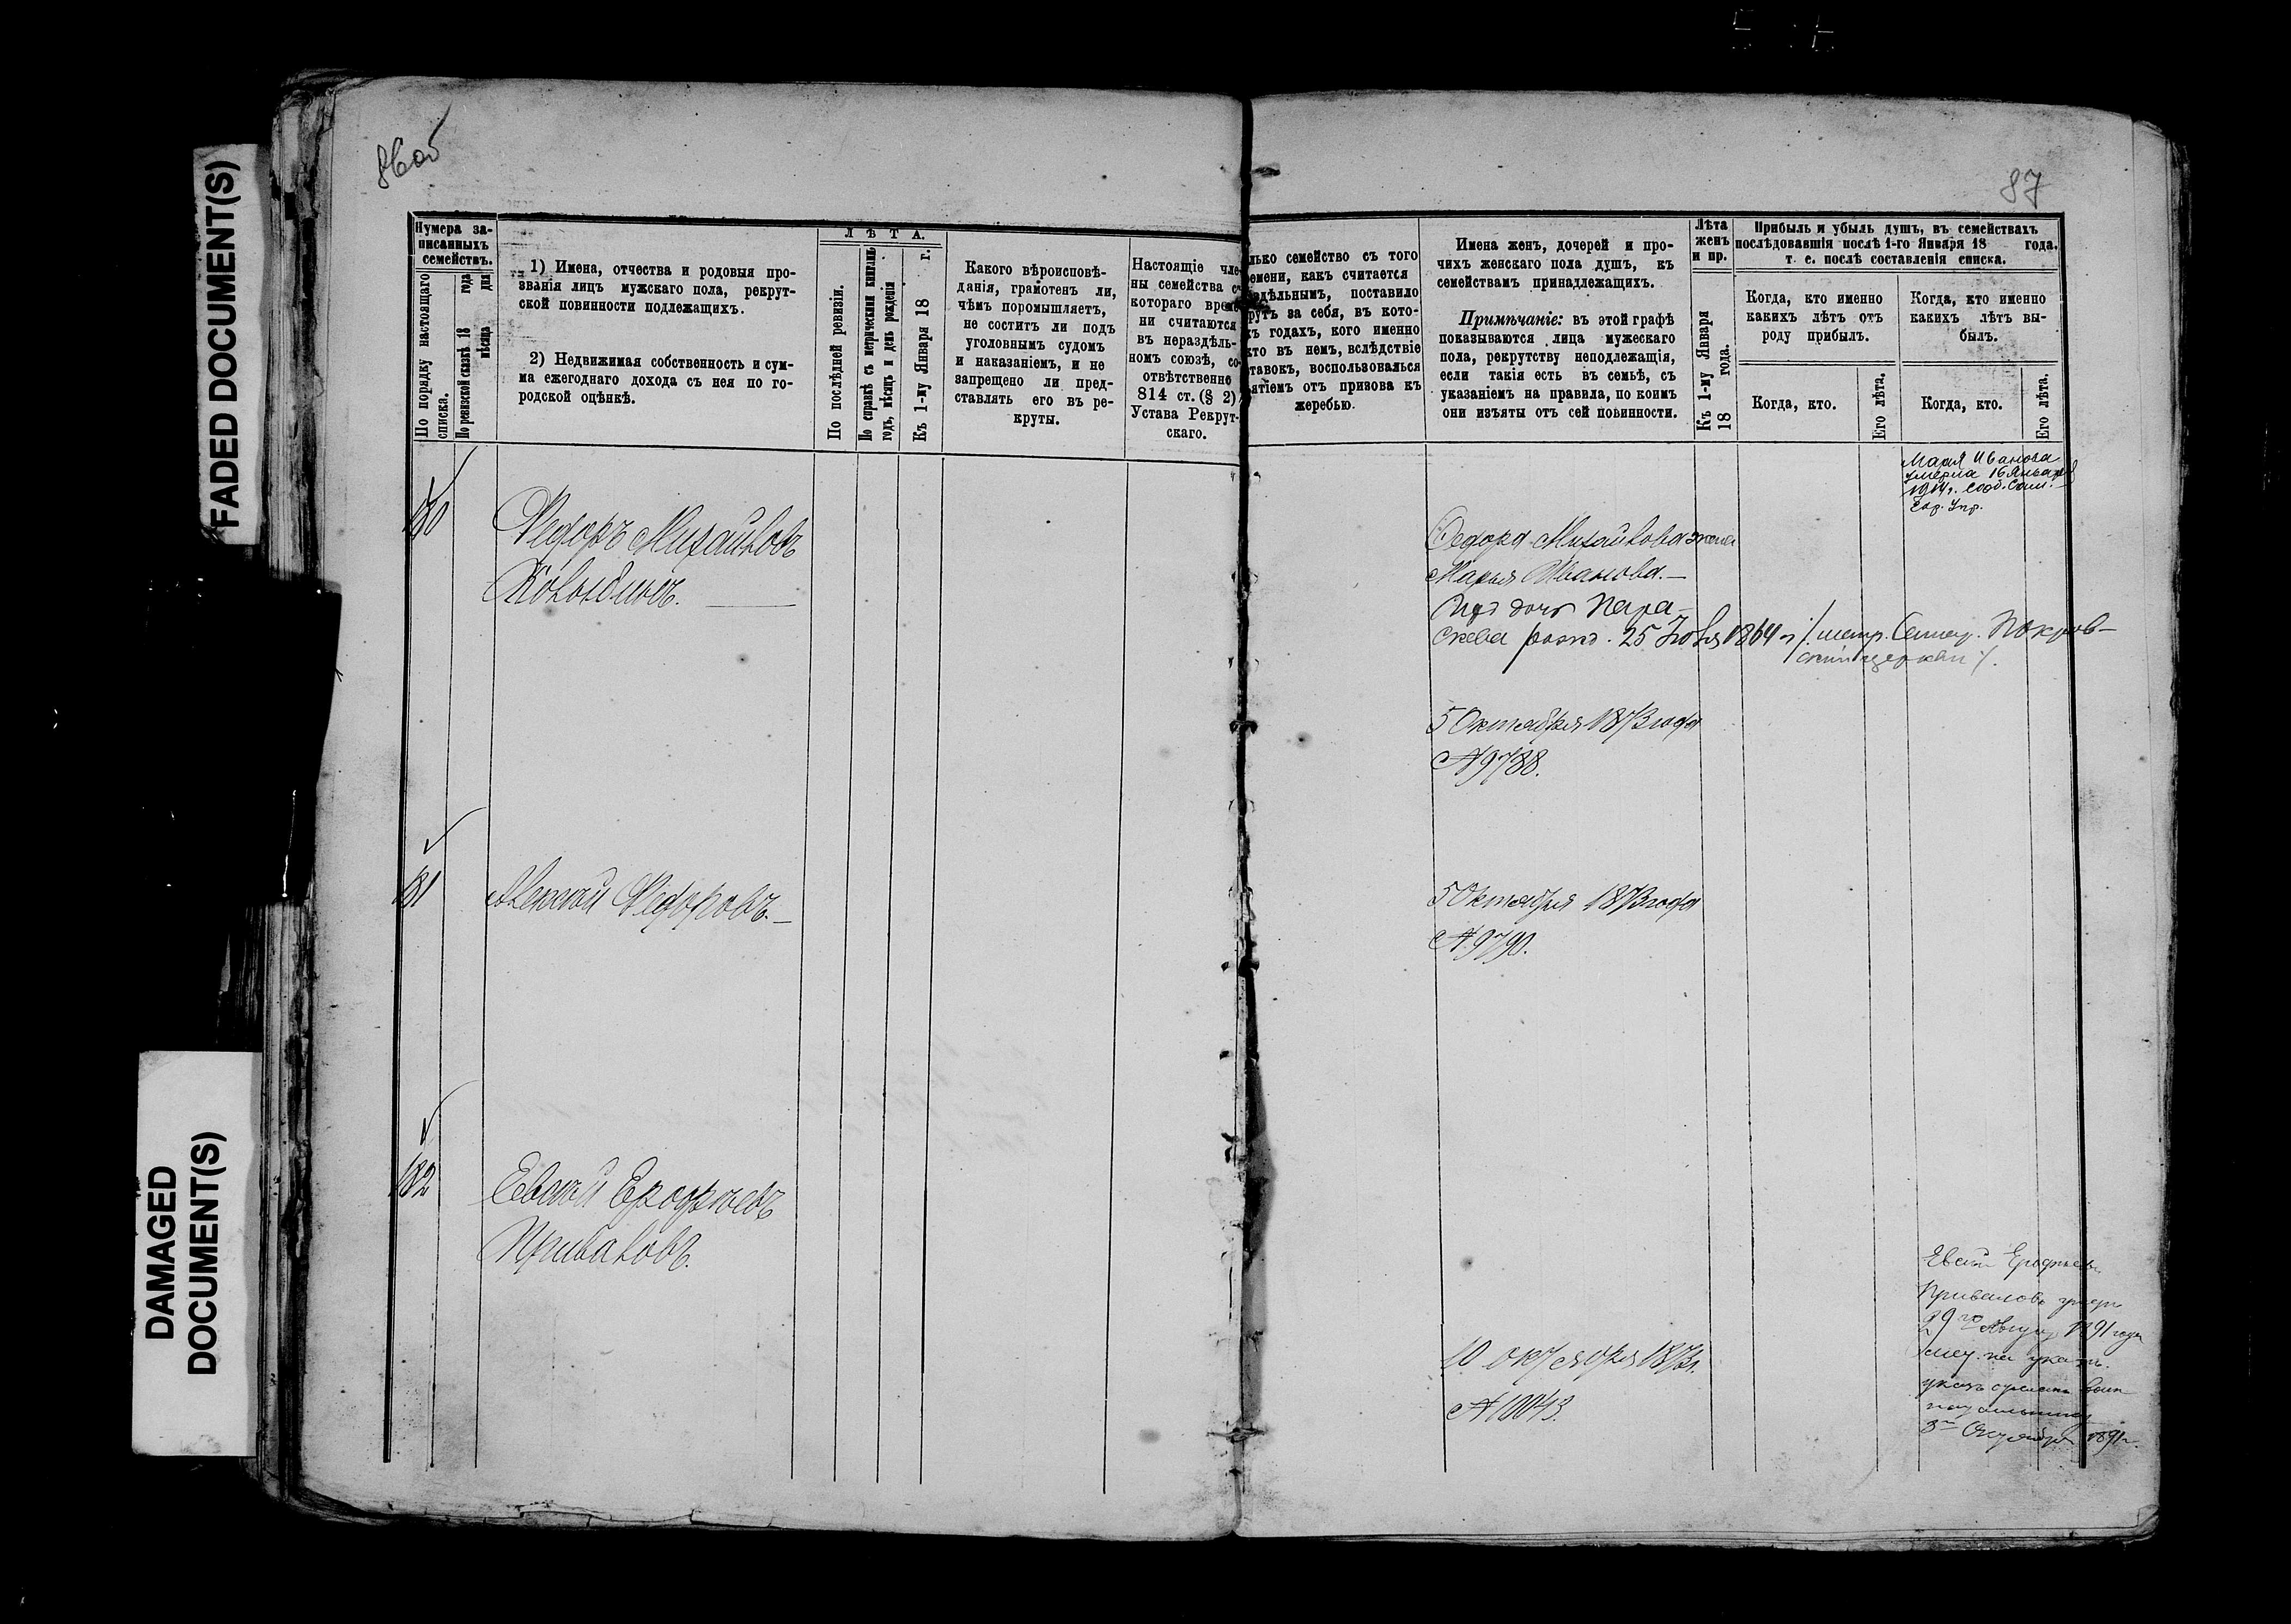 FADED DOCUMENT(S)
DAMAGED
DOCUMENT(S)
86об
Нумера за-
писанныхъ
семействъ.
По порядку настоящаго
списка.
По ревизской сказкѣ 18 года
мѣсяца дня
1) Имена, отчества и родовыя про-
званія лицъ мужскаго пола, рекрут-
ской повинности подлежащихъ.
2) Недвижимая собственность и сум-
ма ежегоднаго дохода съ нея по го-
родской оцѣнкѣ.
ЛѢТА.
По послѣдней ревизіи.
По справкѣ съ метрическими книгами
годъ, мѣсяцъ и день рожденія
Къ 1-му Января 18 г.
Какого вѣроисповѣ-
данія, грамотенъ ли,
чѣмъ поромышляетъ,
не соститъ ли подъ
уголовнымъ судомъ
и наказаніемъ, и не
запрещено ли пред-
ставлять его въ ре-
круты.
Настоящіе чле-
ны семейства с
котораго врем
ни считаются
въ нераздѣль-
номъ союзѣ, со-
отвѣтственно
814 ст. (§ 2)
Устава Рекрут-
скаго.
180
Федоръ Михайловъ
181
Федоровъ.
182
Евсѣй Ерофѣевъ
Приваловъ.
87
лько семейство съ того
емени, какъ считается
здѣльнымъ, поставило
рутъ за себя, въ кото-
хъ годахъ, кого именно
кто въ немъ, вслѣдствіе
тавокъ, воспользовался
ятіемъ отъ призова къ
жеребью.
Имена женъ, дочерей и про-
чихъ женскаго пола душъ, къ
семействамъ принадлежащихъ.
Примѣчаніе: въ этой графѣ
показываются лица мужескаго
пола, рекрутству неподлежащія,
если такія есть въ семьѣ, съ
указаніемъ на правила, по коимъ
они изъяты отъ сей повинности.
Лѣта
женъ
и пр.
Къ 1-му Января
18 года.
Прибыль и убыль душъ, въ семействахъ
послѣдовавшія послѣ 1-го Января 18 года.
т. е. послѣ составленія списка.
Когда, кто именно
какихъ лѣтъ отъ
роду прибылъ.
Когда, кто именно
какихъ лѣтъ вы-
былъ.
Когда, кто.
Его лѣта.
Когда, кто.
Его лѣта.
Марія Иванова
умерла 16 Января
1914г.
Гор. Упр.
Федора Михайлова жена
Марья Иванова.—
дочь Пара-
скева рожд. 25 1864 г /: метр. Покров-
ской церкви :/.
5 Октября 1873 года
№ 9788.
5 Октября 1873 года
№ 9790.
10 октября 1873г.
№ 10043.
Евсѣй Ерофѣевъ
Приваловъ умеръ
29го 1891 года
3го 1891г.